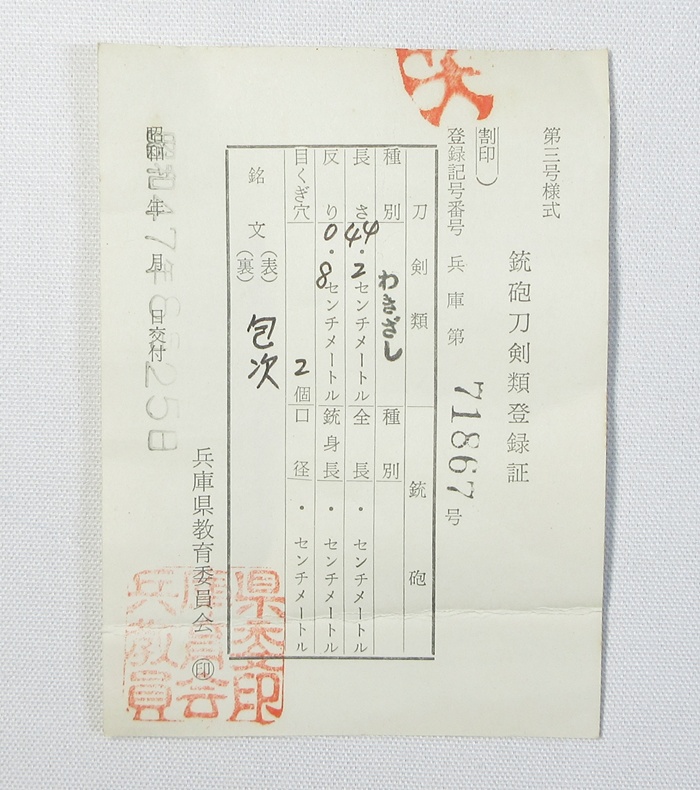 第三号様式
銃砲刀剣類登録証
割印
登録記号番号 兵庫第 71867 号
刀剣類 銃砲
種別 わきざし 種別
長さ 44.2 センチメートル 全長 ・ センチメートル
反り 0.8 センチメートル 銃身長 ・ センチメートル
目くぎ穴 2 個 口径 ・ センチメートル
銘文 (表) (裏) 包次
兵庫県教育委員会 印
昭和 年 月 日交付
昭和47年8月25日